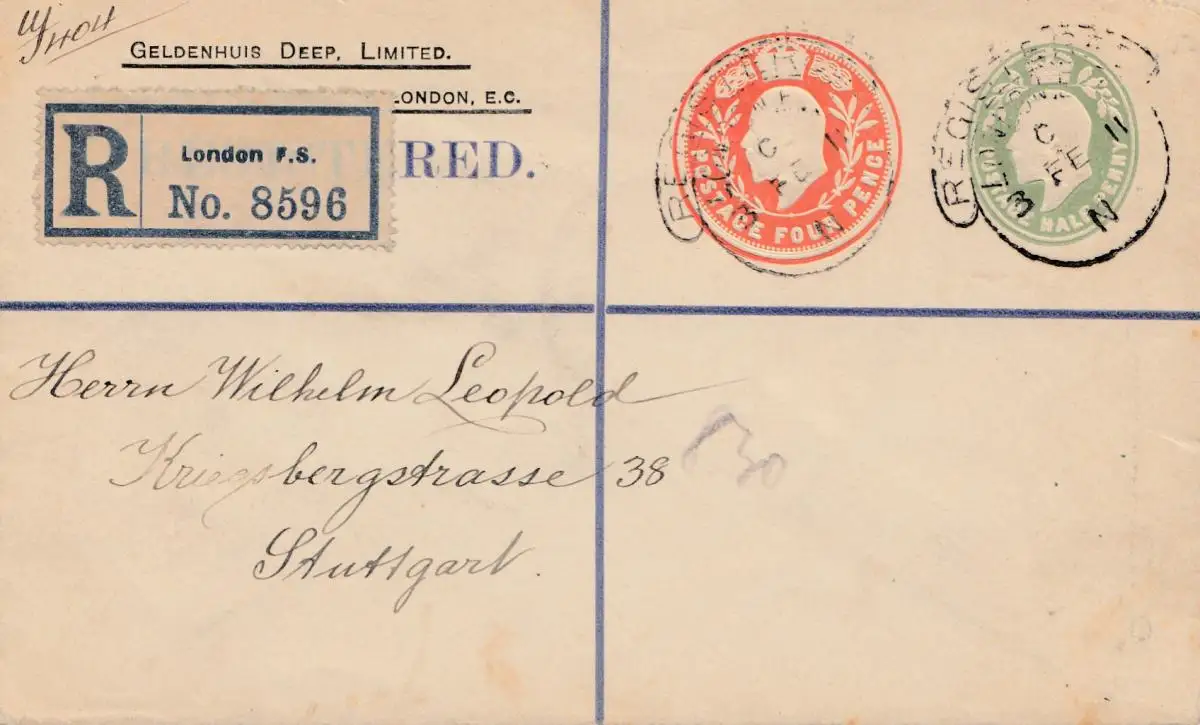 GELDENHUIS DEEP, LIMITED.
LONDON, E.C.
RED.
R
London F.S.
No. 8596
POSTAGE FOUR PENCE
POSTAGE HALFPENNY
REGISTERED
FE
11
Herrn Wilhelm Leopold
Kriegsbergstrasse 38
Stuttgart.